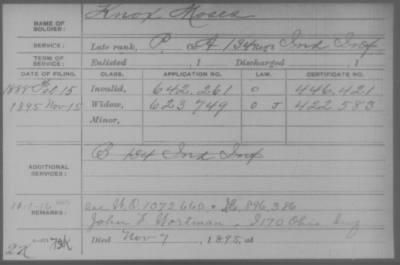 NAME OF SOLDIER: Knox Moses
SERVICE: Late rank, P. A 134 Reg't Ind Inf
TERM OF SERVICE: Enlisted , 1 Discharged , 1
DATE OF FILING. CLASS. APPLICATION NO. LAW. CERTIFICATE NO.
1888 15 Invalid, 642,261 O 446,421
1895 Nov 15 Widow, 623,749 O J 422,583
Minor,
ADDITIONAL SERVICES: B 124 Ind Inf
REMARKS: W.O. 1072660 896,386
John F. Wortman, I 170 Ohio Inf
Died Nov 7 , 1895, at